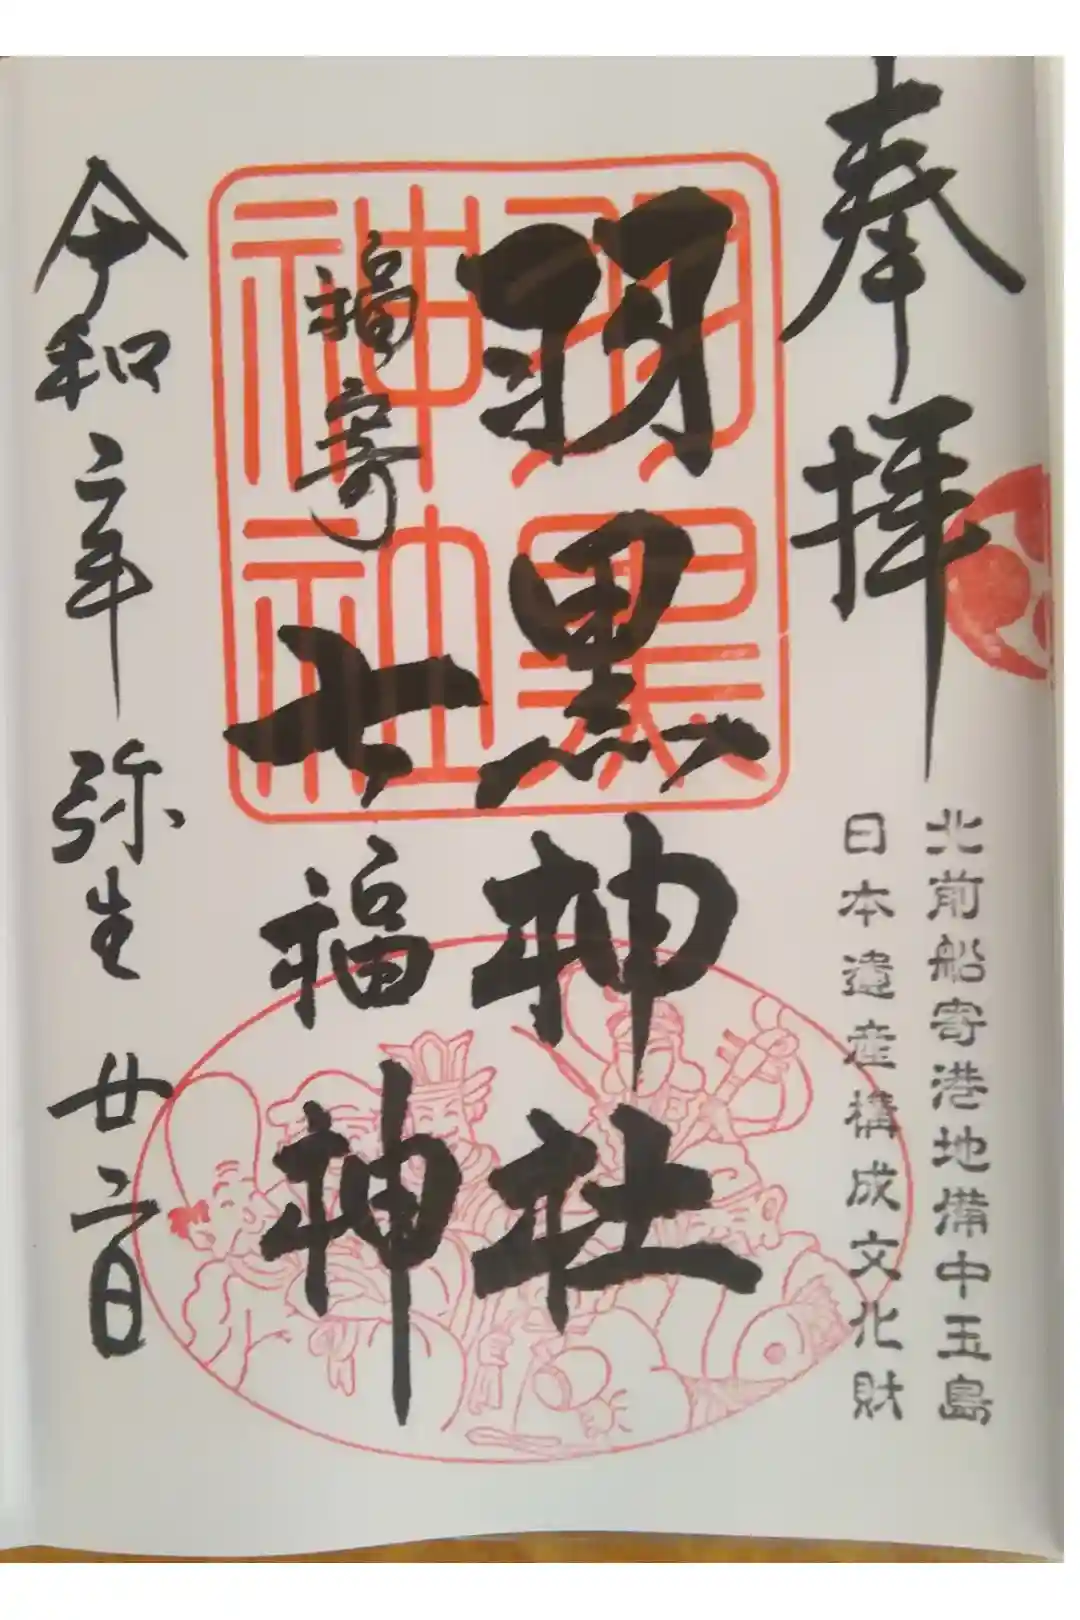 奉拝
北前船寄港地備中玉島
日本遺産構成文化財
羽黒神社
羽黒
神社
福寄
七福神
令和二年弥生廿二日